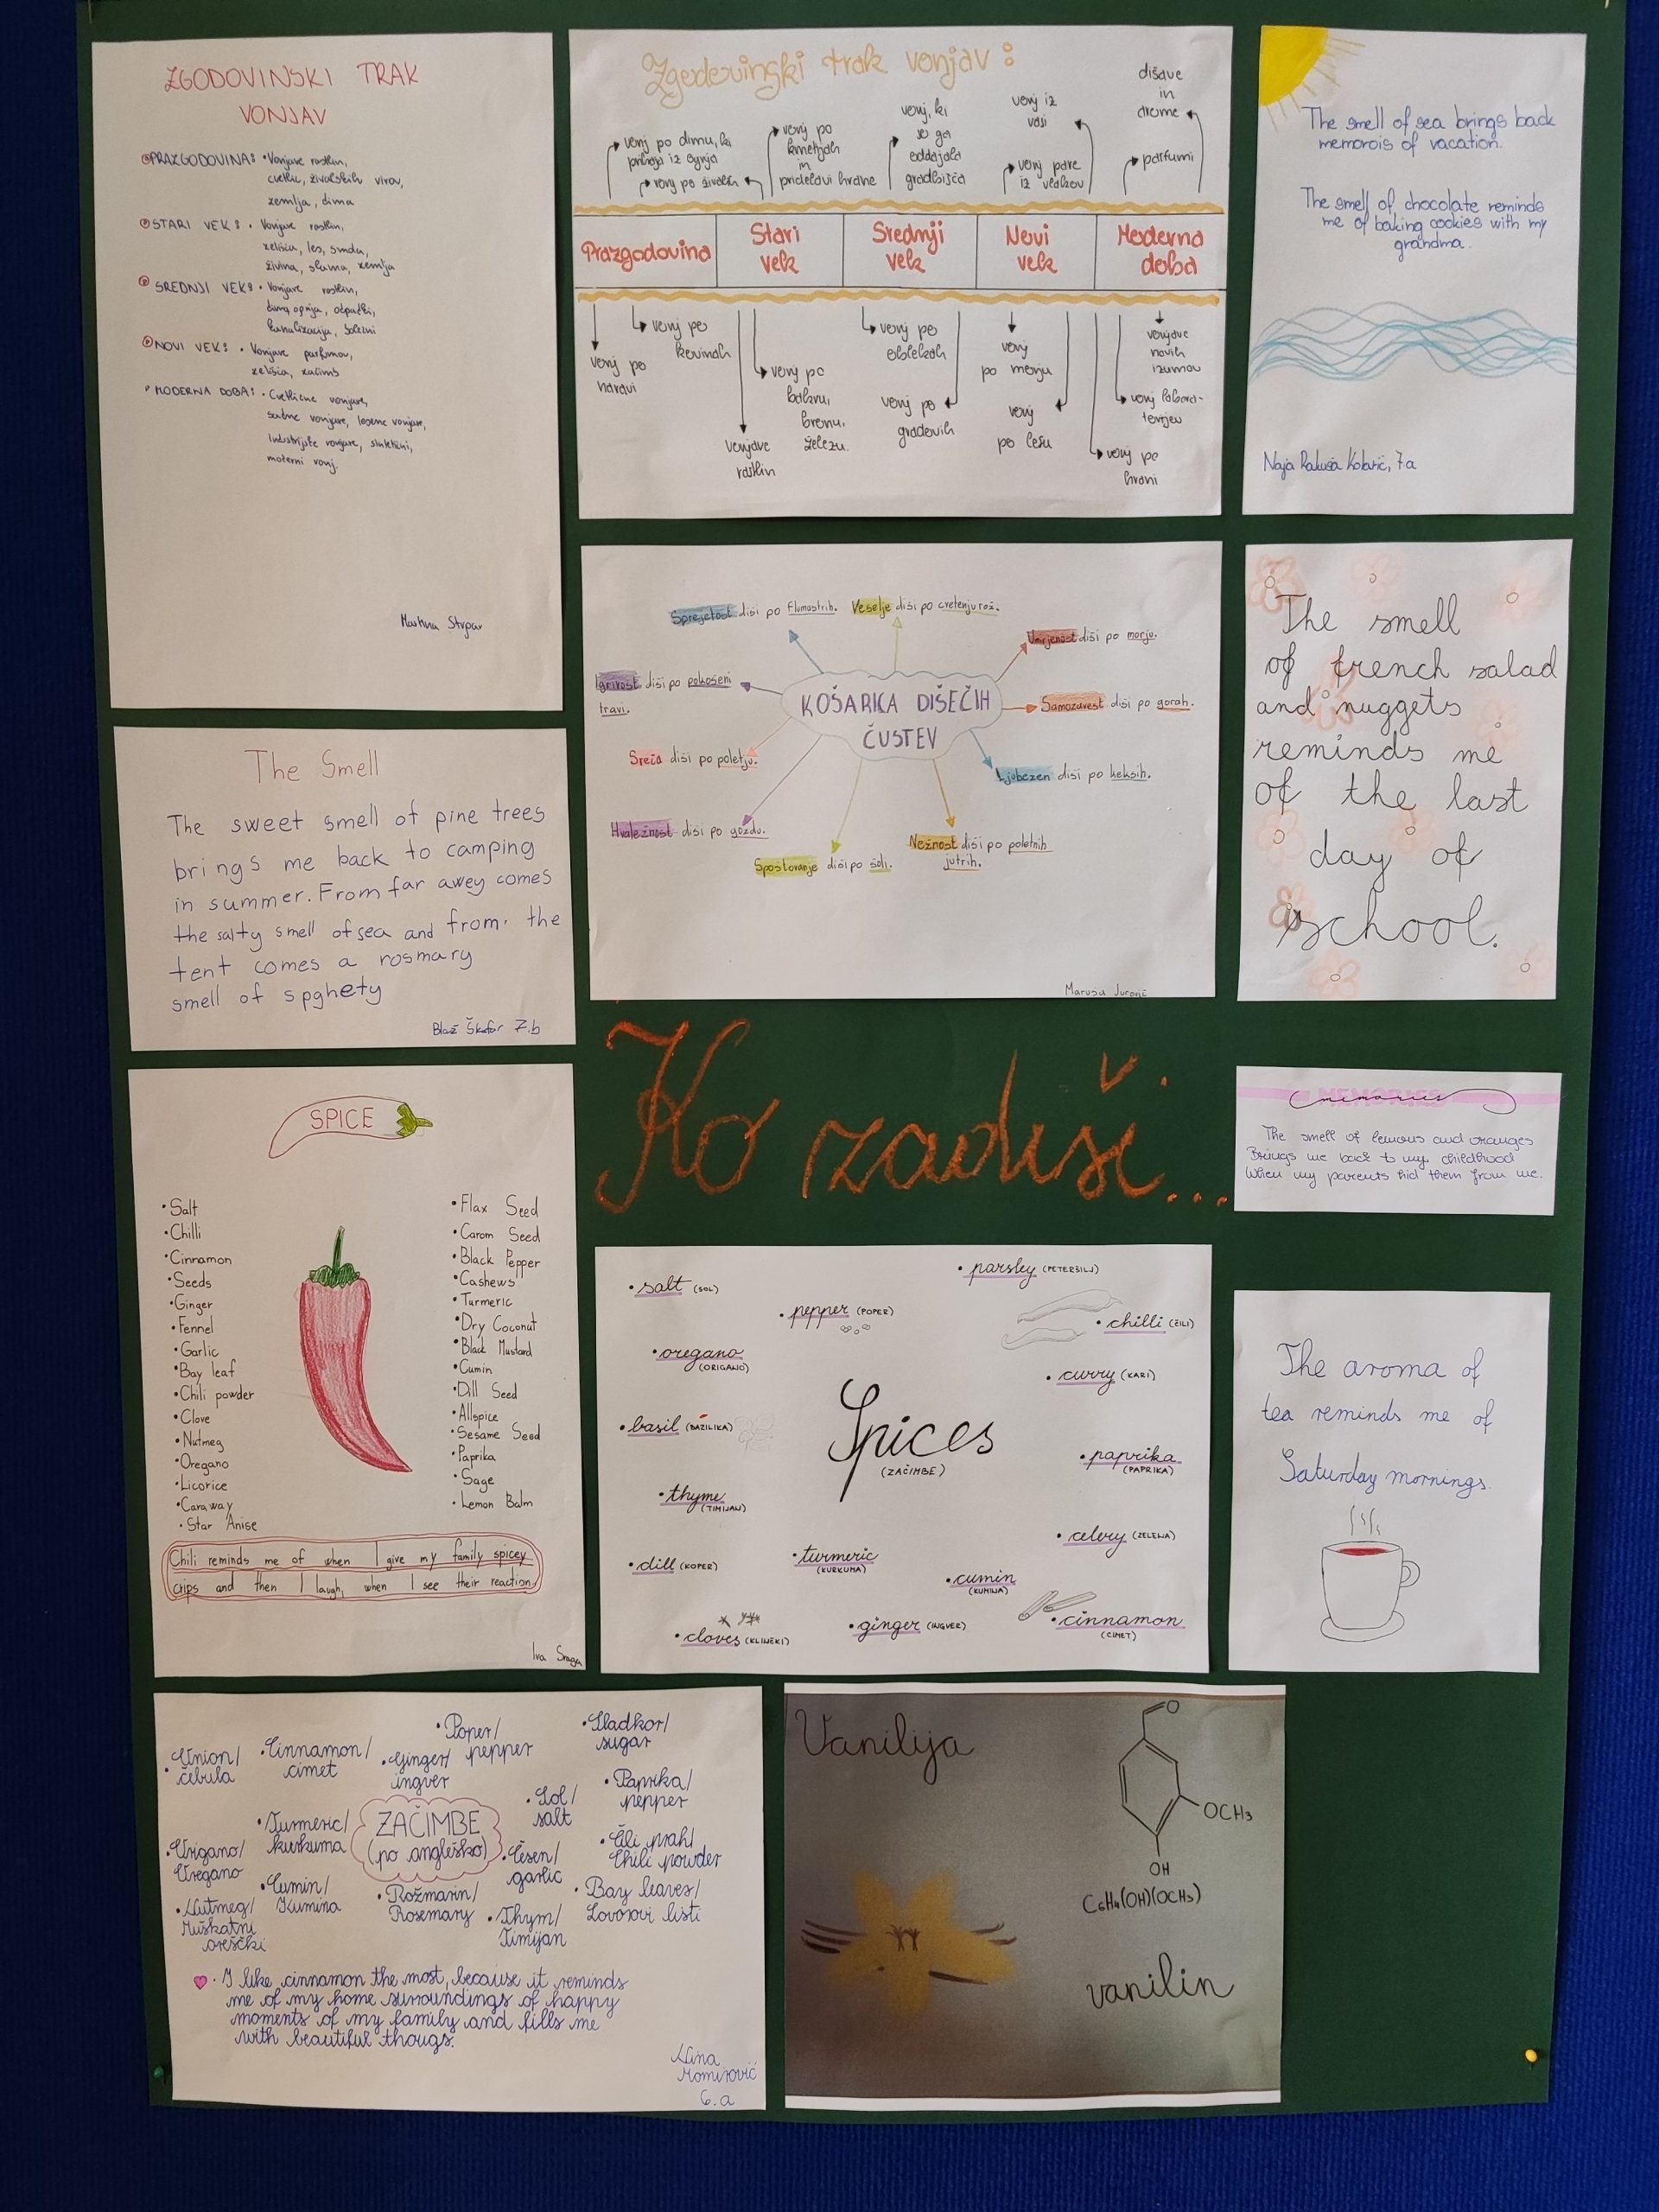 ZGODOVINSKI TRAK
VONJAV
PRAZGODOVINA: • Vonjave rastlin,
cvetlic, živalskih virov,
zemlja, dima
STARI VEK: • Vonjave rastlin,
zelišča, les, smola,
živina, slama, zemlja
SREDNJI VEK: • Vonjave rastlin,
dima, ognja, odpadki,
kanalizacija, bolezni
NOVI VEK: • Vonjave parfumov,
zelišča, začimb
MODERNA DOBA: • Cvetlične vonjave,
sadne vonjave, lesene vonjave,
moterni vonj.
Zgodovinski trak vonjav:
vonj po dimu, ki
prihaja iz ognja
vonj po živalih
vonj po
kmetijah
in
pridelavi hrane
vonj, ki
so ga
oddajala
gradbišča
vonj iz
vasi
vonj pare
iz vlakov
dišave
in
arome
parfumi
Prazgodovina
Stari
vek
Srednji
vek
Novi
vek
Moderna
doba
vonj po
naravi
vonj po
kovinah
vonjave
rastlin
vonj po
bakru,
bronu,
železu.
vonj po
oblekah
vonj po
gradovih
vonj
po morju
vonj
po lesu
vonjave
novih
izumov
vonj labora-
torijev
vonj po
hrani
The smell of sea brings back
memorois of vacation.
The smell of chocolate reminds
me of baking cookies with my
grandma.
Naja Rakuša Kolarič, 7a
KOŠARICA DIŠEČIH
ČUSTEV
Sprejetost diši po flumastrih.
Veselje diši po cvetenju rož.
Umirjenost diši po morju.
Igrivost diši po pokošeni
travi.
Samozavest diši po gorah.
Sreča diši po poletju.
Ljubezen diši po keksih.
Hvaležnost diši po gozdu.
Nežnost diši po poletnih
jutrih.
Spoštovanje diši po šoli.
Marusa Jurovič
The smell
of french salad
and nuggets
reminds me
of the last
day of
school.
The Smell
The sweet smell of pine trees
brings me back to camping
in summer. From far awey comes
the salty smell of sea and from the
tent comes a rosmary
smell of spghety
Blaž Škafar 7.b
Ko zadiši...
MEMORIES
memories
The smell of lemons and oranges
Brings me back to my childhood
When my parents hid them from me.
SPICE
• Salt
• Chilli
• Cinnamon
• Seeds
• Ginger
• Fennel
• Garlic
• Bay leaf
• Chili powder
• Clove
• Nutmeg
• Oregano
• Licorice
• Caraway
• Star Anise
• Flax Seed
• Carom Seed
• Black Pepper
• Cashews
• Turmeric
• Dry Coconut
• Black Mustard
• Cumin
• Dill Seed
• Allspice
• Sesame Seed
• Paprika
• Sage
• Lemon Balm
Chili reminds me of when I give my family spicey
crips and then I laugh, when I see their reaction.
Iva Sraga
Spices
(ZAČIMBE)
• salt (SOL)
• pepper (POPER)
• parsley (PETERŠILJ)
• chilli (ČILI)
• oregano
(ORIGANO)
• curry (KARI)
• basil (BAZILIKA)
• paprika
(PAPRIKA)
• thyme
(TIMIJAN)
• celery (ZELENA)
• dill (KOPER)
• turmeric
(KURKUMA)
• cumin
(KUMINA)
• cloves (KLINČKI)
• ginger (INGVER)
• cinnamon
(CIMET)
The aroma of
tea reminds me of
Saturday mornings.
ZAČIMBE
(po angleško)
• Union/
čebula
• Cinnamon/
cimet
• Ginger/
ingver
• Poper/
pepper
• Sladkor/
sugar
• Sol/
salt
• Paprika/
pepper
• Turmeric/
kurkuma
• Origano/
Oregano
• Česen/
garlic
• Čili prah/
Chili powder
• Cumin/
Kumina
• Nutmeg/
Muškatni
oreščki
• Rožmarin/
Rosemary
• Thym/
Timijan
• Bay leaves/
Lovorovi listi
• I like cinnamon the most, because it reminds
me of my home surroundings of happy
moments of my family and fills me
with beautiful thougs.
Nina
Momirović
6.a
Vanilija
O
OCH3
OH
C6H4(OH)(OCH3)
vanilin